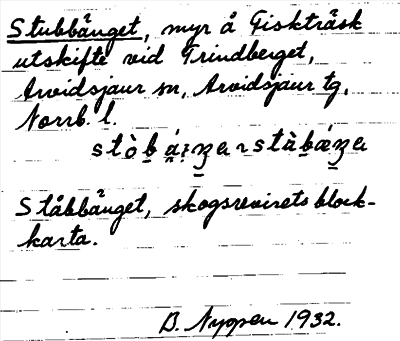 Stubbänget, myr å Fiskträsk
utskifte vid Grindberget,
Arvidsjaur sn, Arvidsjaur tg,
Norrb. l.
Ståbbänget, skogsrevirets block-
karta.
B. Nyopen 1932.